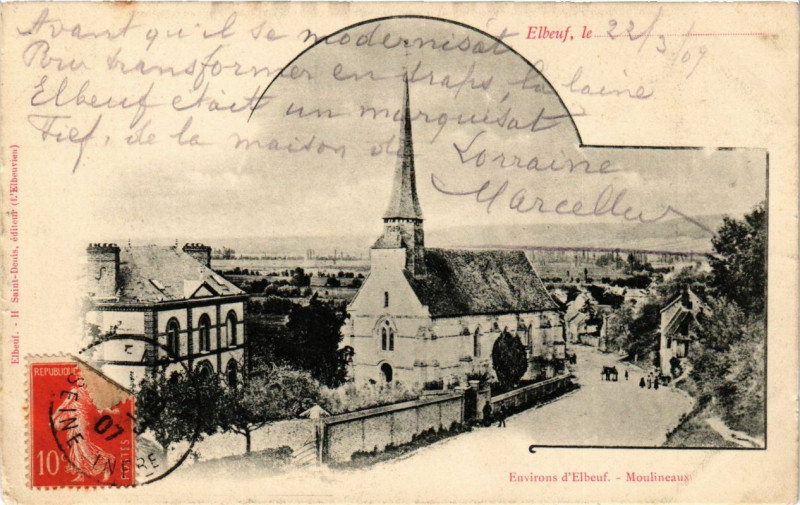 Elbeuf, le 22/3/07
Avant qu'il se modernisât
Pour transformer en draps, la laine
Elbeuf était un marquisat
Fief, de la maison de Lorraine
Marcellus
Elbeuf. - H Saint-Denis, éditeur (L'Elbeuvien)
REPUBLIQUE
10
POSTES
SEINE
07
Environs d'Elbeuf. - Moulineaux